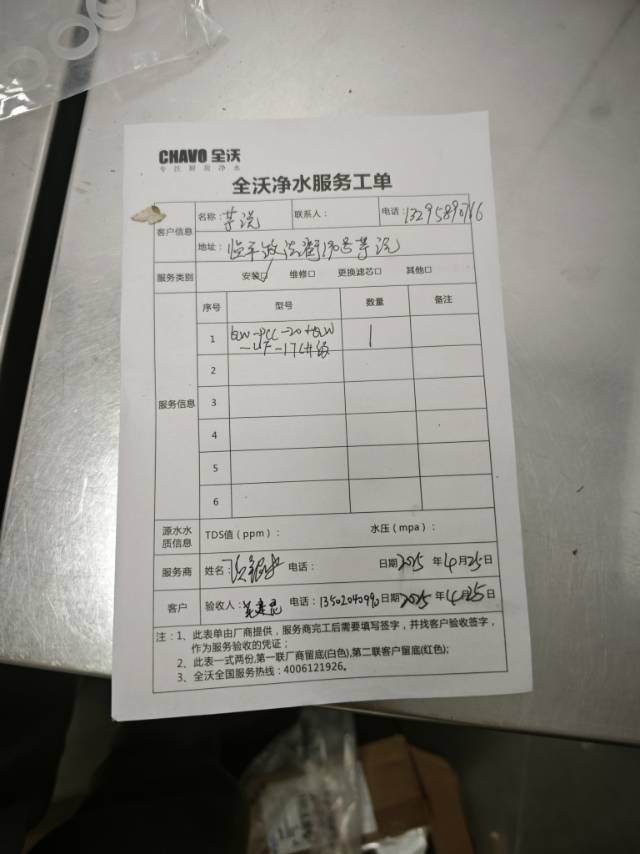 CHAVO 全沃
专注厨房净水
全沃净水服务工单
客户信息
名称: 芋说 联系人: 电话:
地址: 临平 芋说
服务类别 安装☑ 维修□ 更换滤芯□ 其他□
服务信息
序号 型号 数量 备注
1 1
2
3
4
5
6
源水水质信息 TDS值（ppm）: 水压（mpa）:
服务商 姓名: 电话: 日期 2025 年 4 月 25 日
客户 验收人: 电话: 13502040990 日期 2025 年 4 月 25 日
注：1、此表单由厂商提供，服务商完工后需要填写签字，并找客户验收签字，
作为服务验收的凭证；
2、此表一式两份,第一联厂商留底(白色),第二联客户留底(红色);
3、全沃全国服务热线：4006121926。